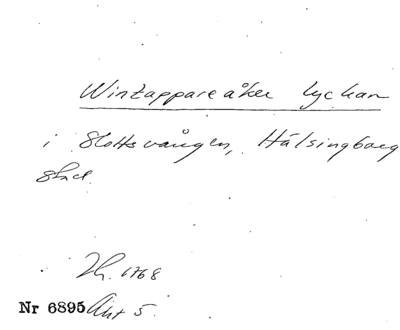 Wintappareåker lyckan
i Slottsvången, Hälsingborg
stad.
Lh. 1768
Nr 6895 Akt 5.